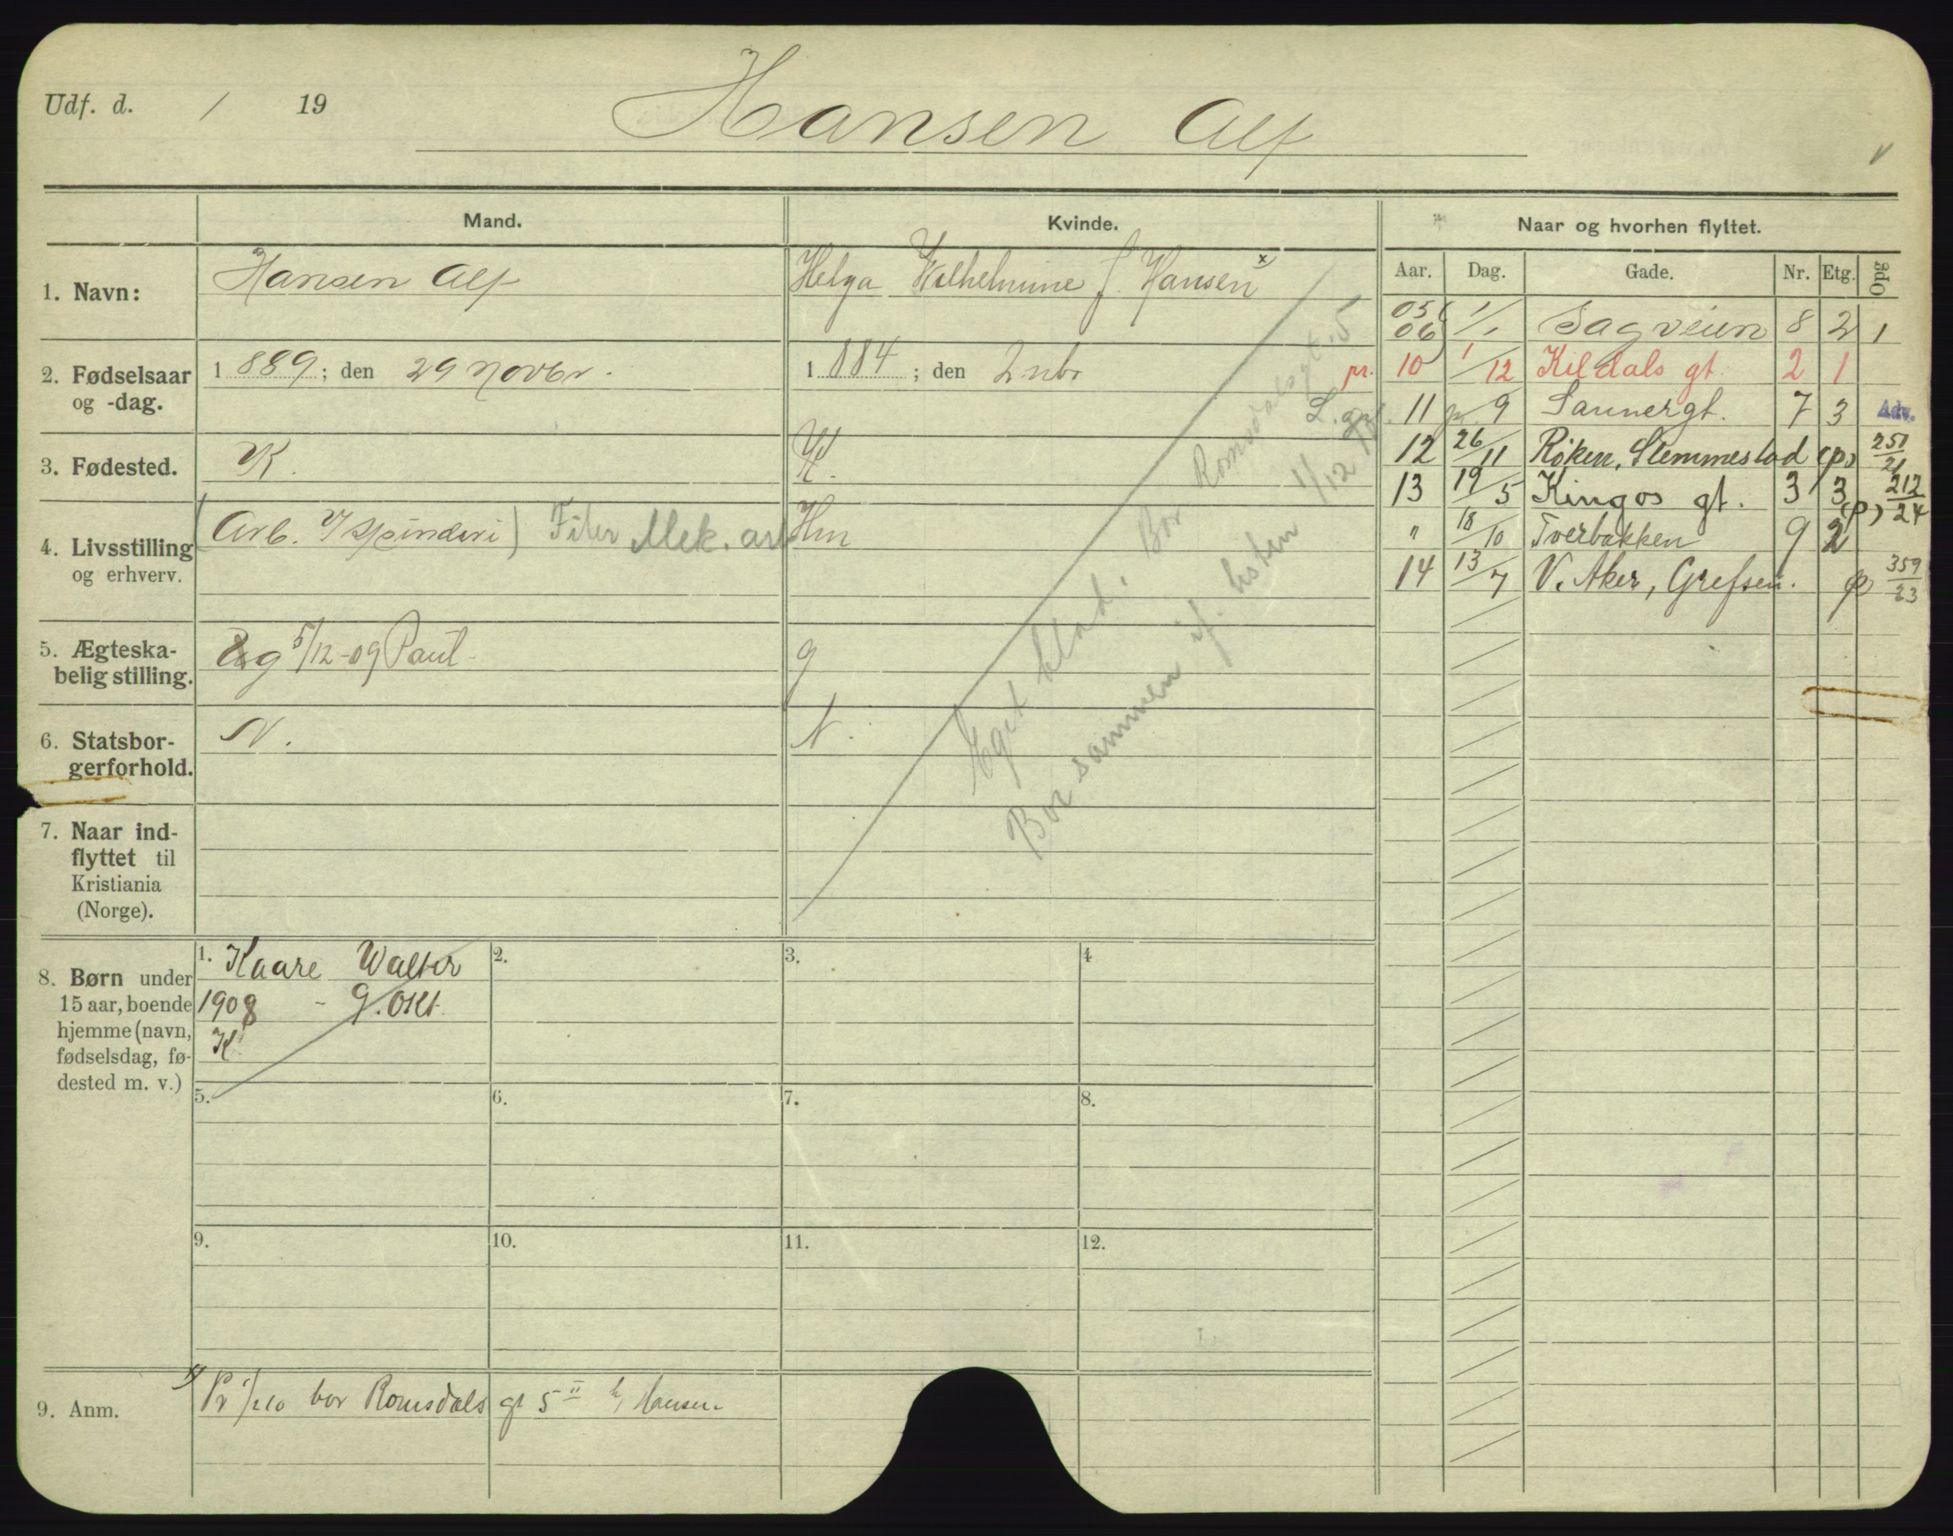 Udf. d. / 19
Hansen Alf
Mand.
Kvinde.
Naar og hvorhen flyttet.
Aar. Dag. Gade. Nr. Etg. Opg
1. Navn:
Hansen Alf
Helga Wilhelmine f. Hansen x
2. Fødselsaar
og -dag.
1889; den 29 Novbr.
1884; den 2 nbr
3. Fødested.
K.
K.
4. Livsstilling
og erhverv.
(Arb. v/ spinderi) Filer Mek. arb
Hm
5. Ægteska-
belig stilling.
g 5/12-09 Paul.
g
6. Statsbor-
gerforhold.
N.
N.
7. Naar ind-
flyttet til
Kristiania
(Norge).
Eget blad. Bor Romsdalsgt. 5
Bor sammen if. listen 1/12
05
06 1/1 Sagveien 8 2 1
pr. 10 1/12 Kildals gt. 2 1
11 9 Sannergt. 7 3 Adv.
12 26/11 Røken, Slemmestad (p) 251/21
13 19/5 Kingos gt. 3 3 (p) 212/24
" 18/10 Tverbakken 9 2
14 13/7 V. Aker, Grefsen. p 359/23
8. Børn under
15 aar, boende
hjemme (navn,
fødselsdag, fø-
dested m. v.)
1. Kaare Walter
1908 - 9. Okt.
K
2.
3.
4
5.
6.
7.
8.
9.
10.
11.
12.
9. Anm.
Pr 1/210 bor Romsdals gt 5 II h/ Hansen.